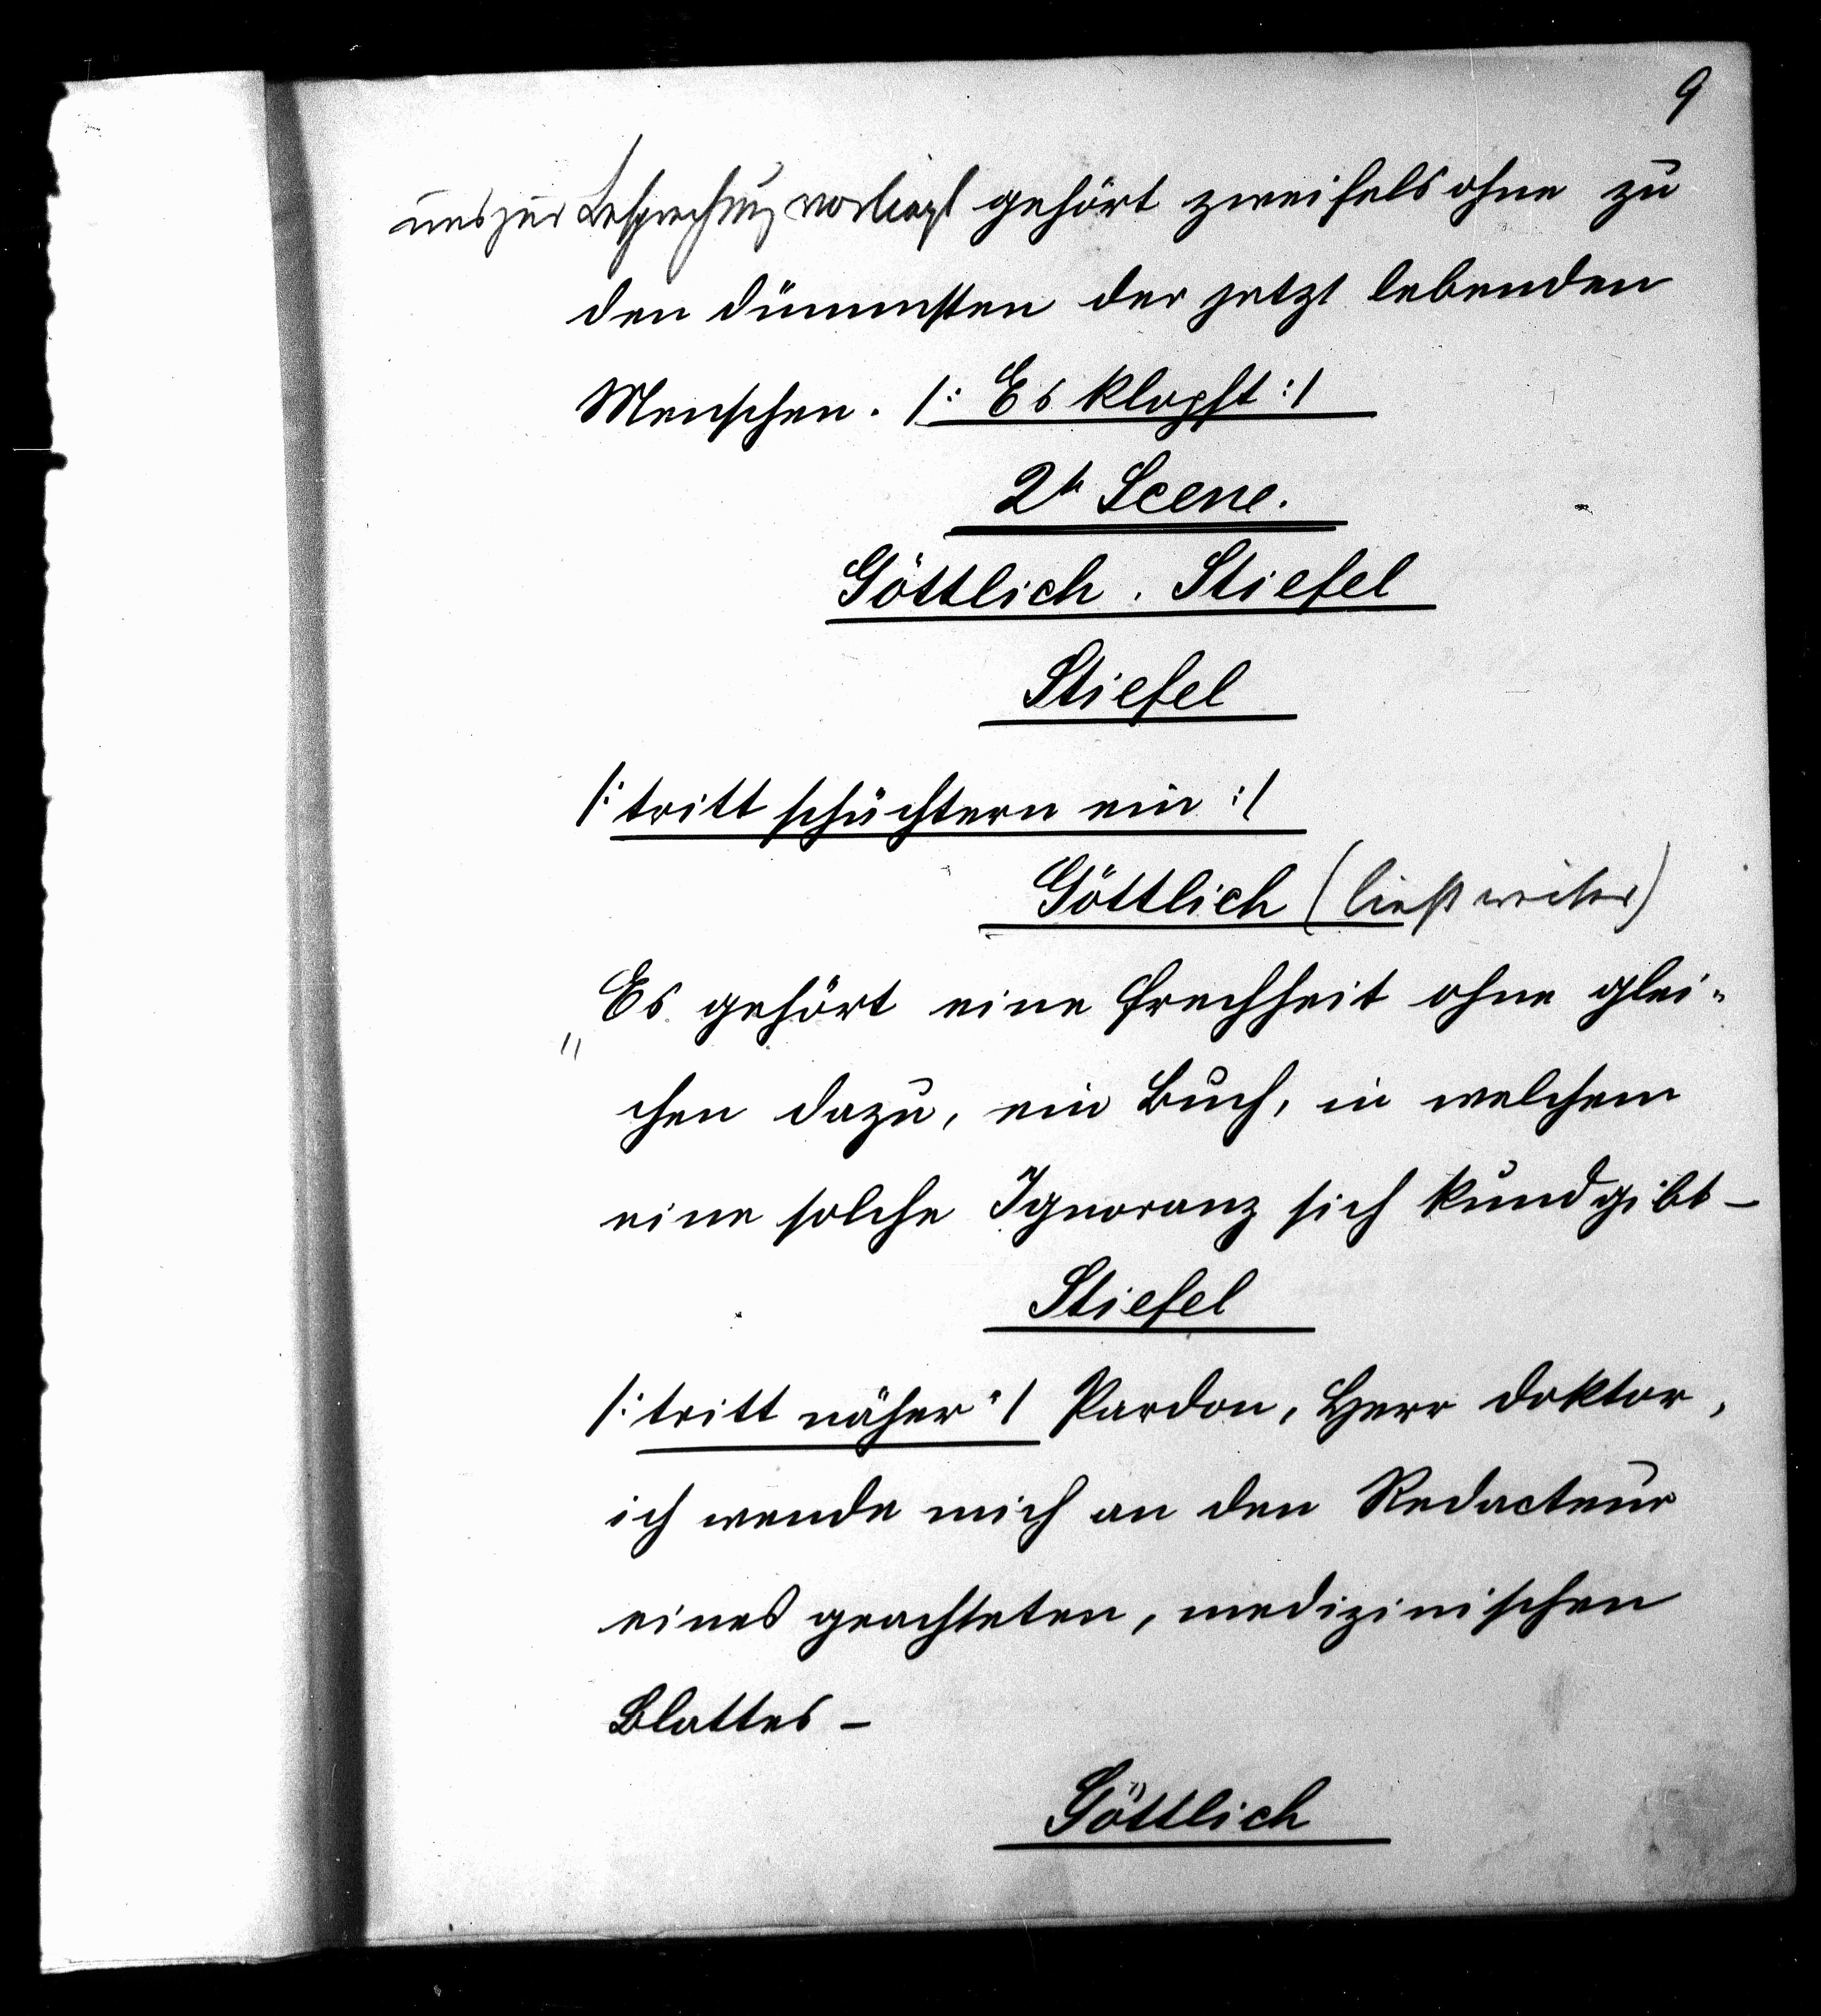 9
uns zur Besprechung vorliegt gehört zweifelsohne zu
den dümmsten der jetzt lebenden
Menschen. /: Es klopft :/
2te Scene.
Göttlich. Stiefel
Stiefel
/: tritt schüchtern ein :/
Göttlich (liest weiter)
„Es gehört eine Frechheit ohne glei-
chen dazu, ein Buch, in welchem
eine solche Ignoranz sich kundgibt –
Stiefel
/: tritt näher :/ Pardon, Herr Doktor,
ich wende mich an den Redacteur
eines geachteten, medizinischen
Blattes –
Göttlich